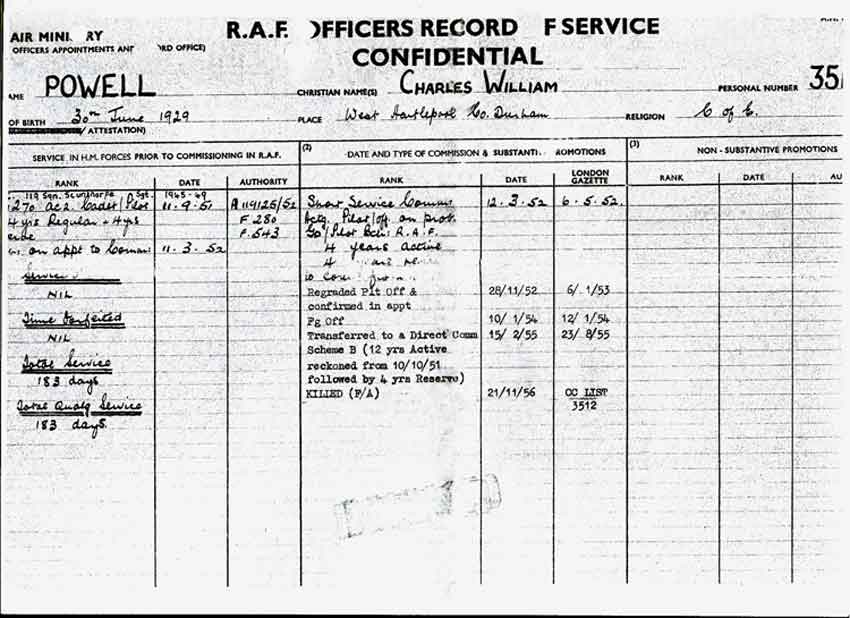 AIR MINI RY
OFFICERS APPOINTMENTS AND RD OFFICE)
R.A.F. OFFICERS RECORD F SERVICE
CONFIDENTIAL
AME POWELL
CHRISTIAN NAME(S) CHARLES WILLIAM
PERSONAL NUMBER 35
OF BIRTH 30th June 1929
PLACE West Hartlepool Co. Durham
RELIGION C of E.
/ ATTESTATION)
SERVICE IN H.M. FORCES PRIOR TO COMMISSIONING IN R.A.F.
RANK DATE AUTHORITY
119 Sqn. Scunthorpe Sgt. 1945-49
270 AC2 Cadet/Pilot 11.9.51 A119125/52
4 yrs Regular + 4 yrs F 280
F.543
on appt to Comm 11.3.52
Service
NIL
Time Forfeited
NIL
Total Service
183 days
Total Qualg Service
183 days.
(2) DATE AND TYPE OF COMMISSION & SUBSTANTI OMOTIONS
RANK DATE LONDON GAZETTE
Short Service Comm 12.3.52 6.5.52.
Actg. Pilot/Off. on prob.
R.A.F.
4 years active
4
Regraded Plt Off & 28/11/52 6/ 1/53
confirmed in appt
Fg Off 10/ 1/54 12/ 1/54
Transferred to a Direct Comm 15/ 2/55 23/ 8/55
Scheme B (12 yrs Active
reckoned from 10/10/51
followed by 4 yrs Reserve)
KILLED (F/A) 21/11/56 CC LIST
3512
(3) NON - SUBSTANTIVE PROMOTIONS
RANK DATE AU